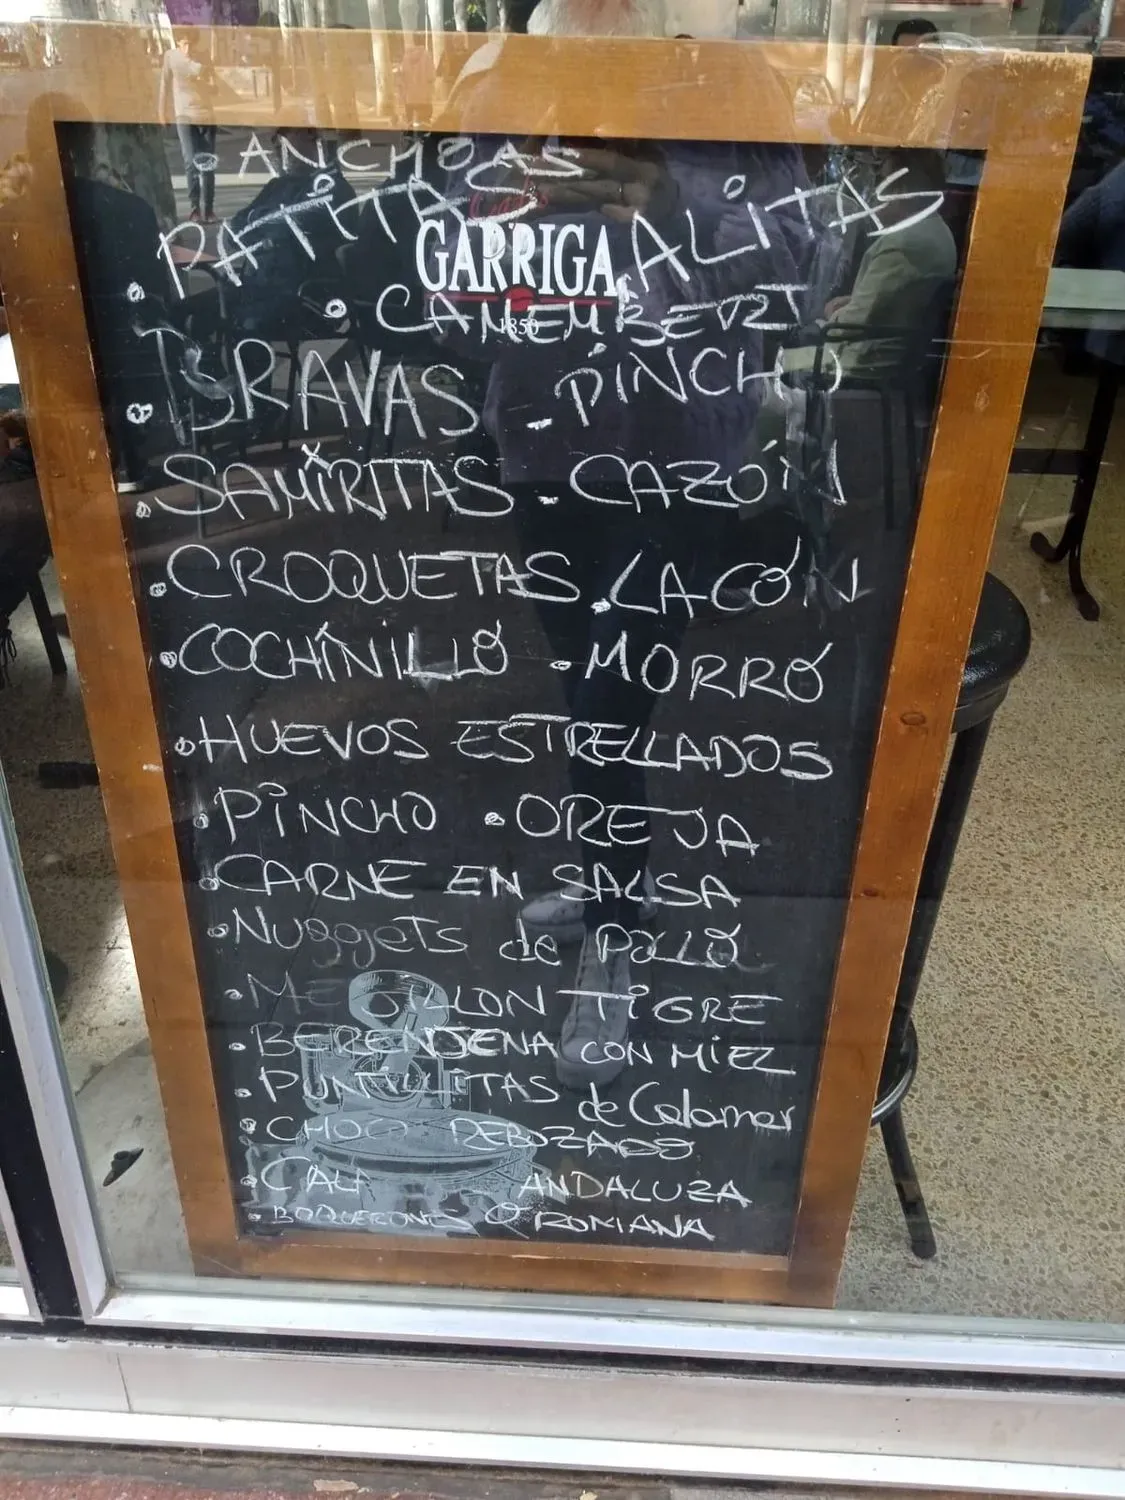 ANCHOAS
PATITAS
Cafés
GARRIGA
1850
ALITAS
CAMEMBERT
BRAVAS - PINCHO
SAMIRITAS - CAZÓN
CROQUETAS . LACÓN
COCHINILLO - MORRO
HUEVOS ESTRELLADOS
PINCHO . OREJA
CARNE EN SALSA
Nuggets de POLLO
MEGILLON TIGRE
BERENJENA CON MIEL
PUNTILLITAS de Calamar
CHOCO REBOZADO
ANDALUZA
BOQUERONES O ROMANA